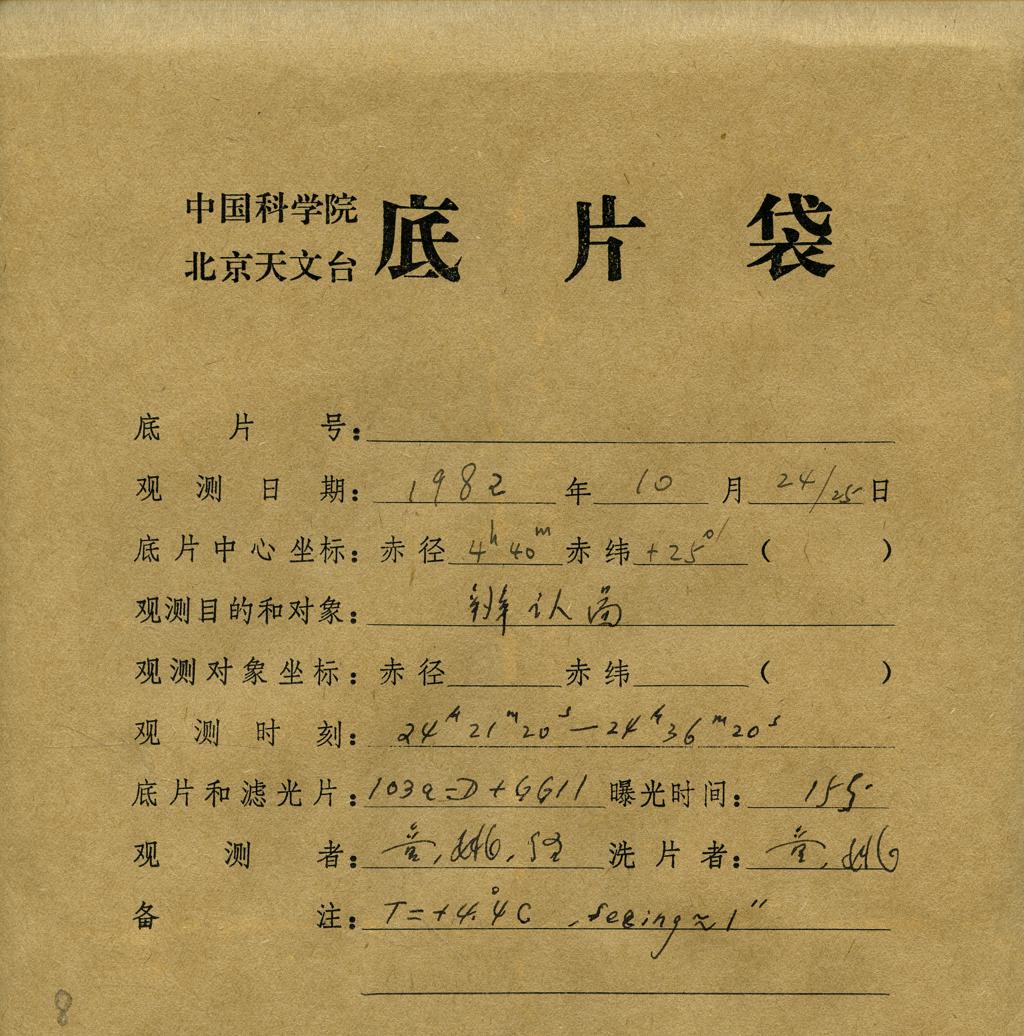 中国科学院
北京天文台
底片袋
底片号：
观测日期：1982年10月24/25日
底片中心坐标：赤径4ʰ40ᵐ赤纬+25°（ ）
观测目的和对象：辨认局
观测对象坐标：赤径 赤纬（ ）
观测时刻：24ʰ21ᵐ20ˢ—24ʰ36ᵐ20ˢ
底片和滤光片：103a-D+GG11 曝光时间：15
观测者： 洗片者：
备注：T=+4.°4C , seeing≈1"
8